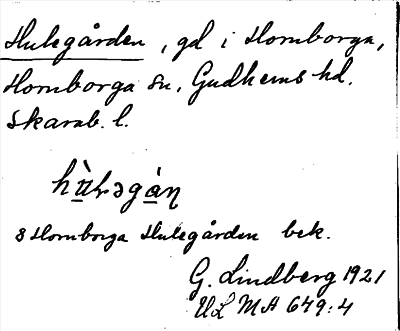 Hulegården, gd i Hornborga,
Hornborga sn, Gudhems hd.
Skarab. l.
hù̱ʟəgà̱ɳ
8 Hornborga Hulegården bek.
G. Lindberg 1921
ULMA 649:4